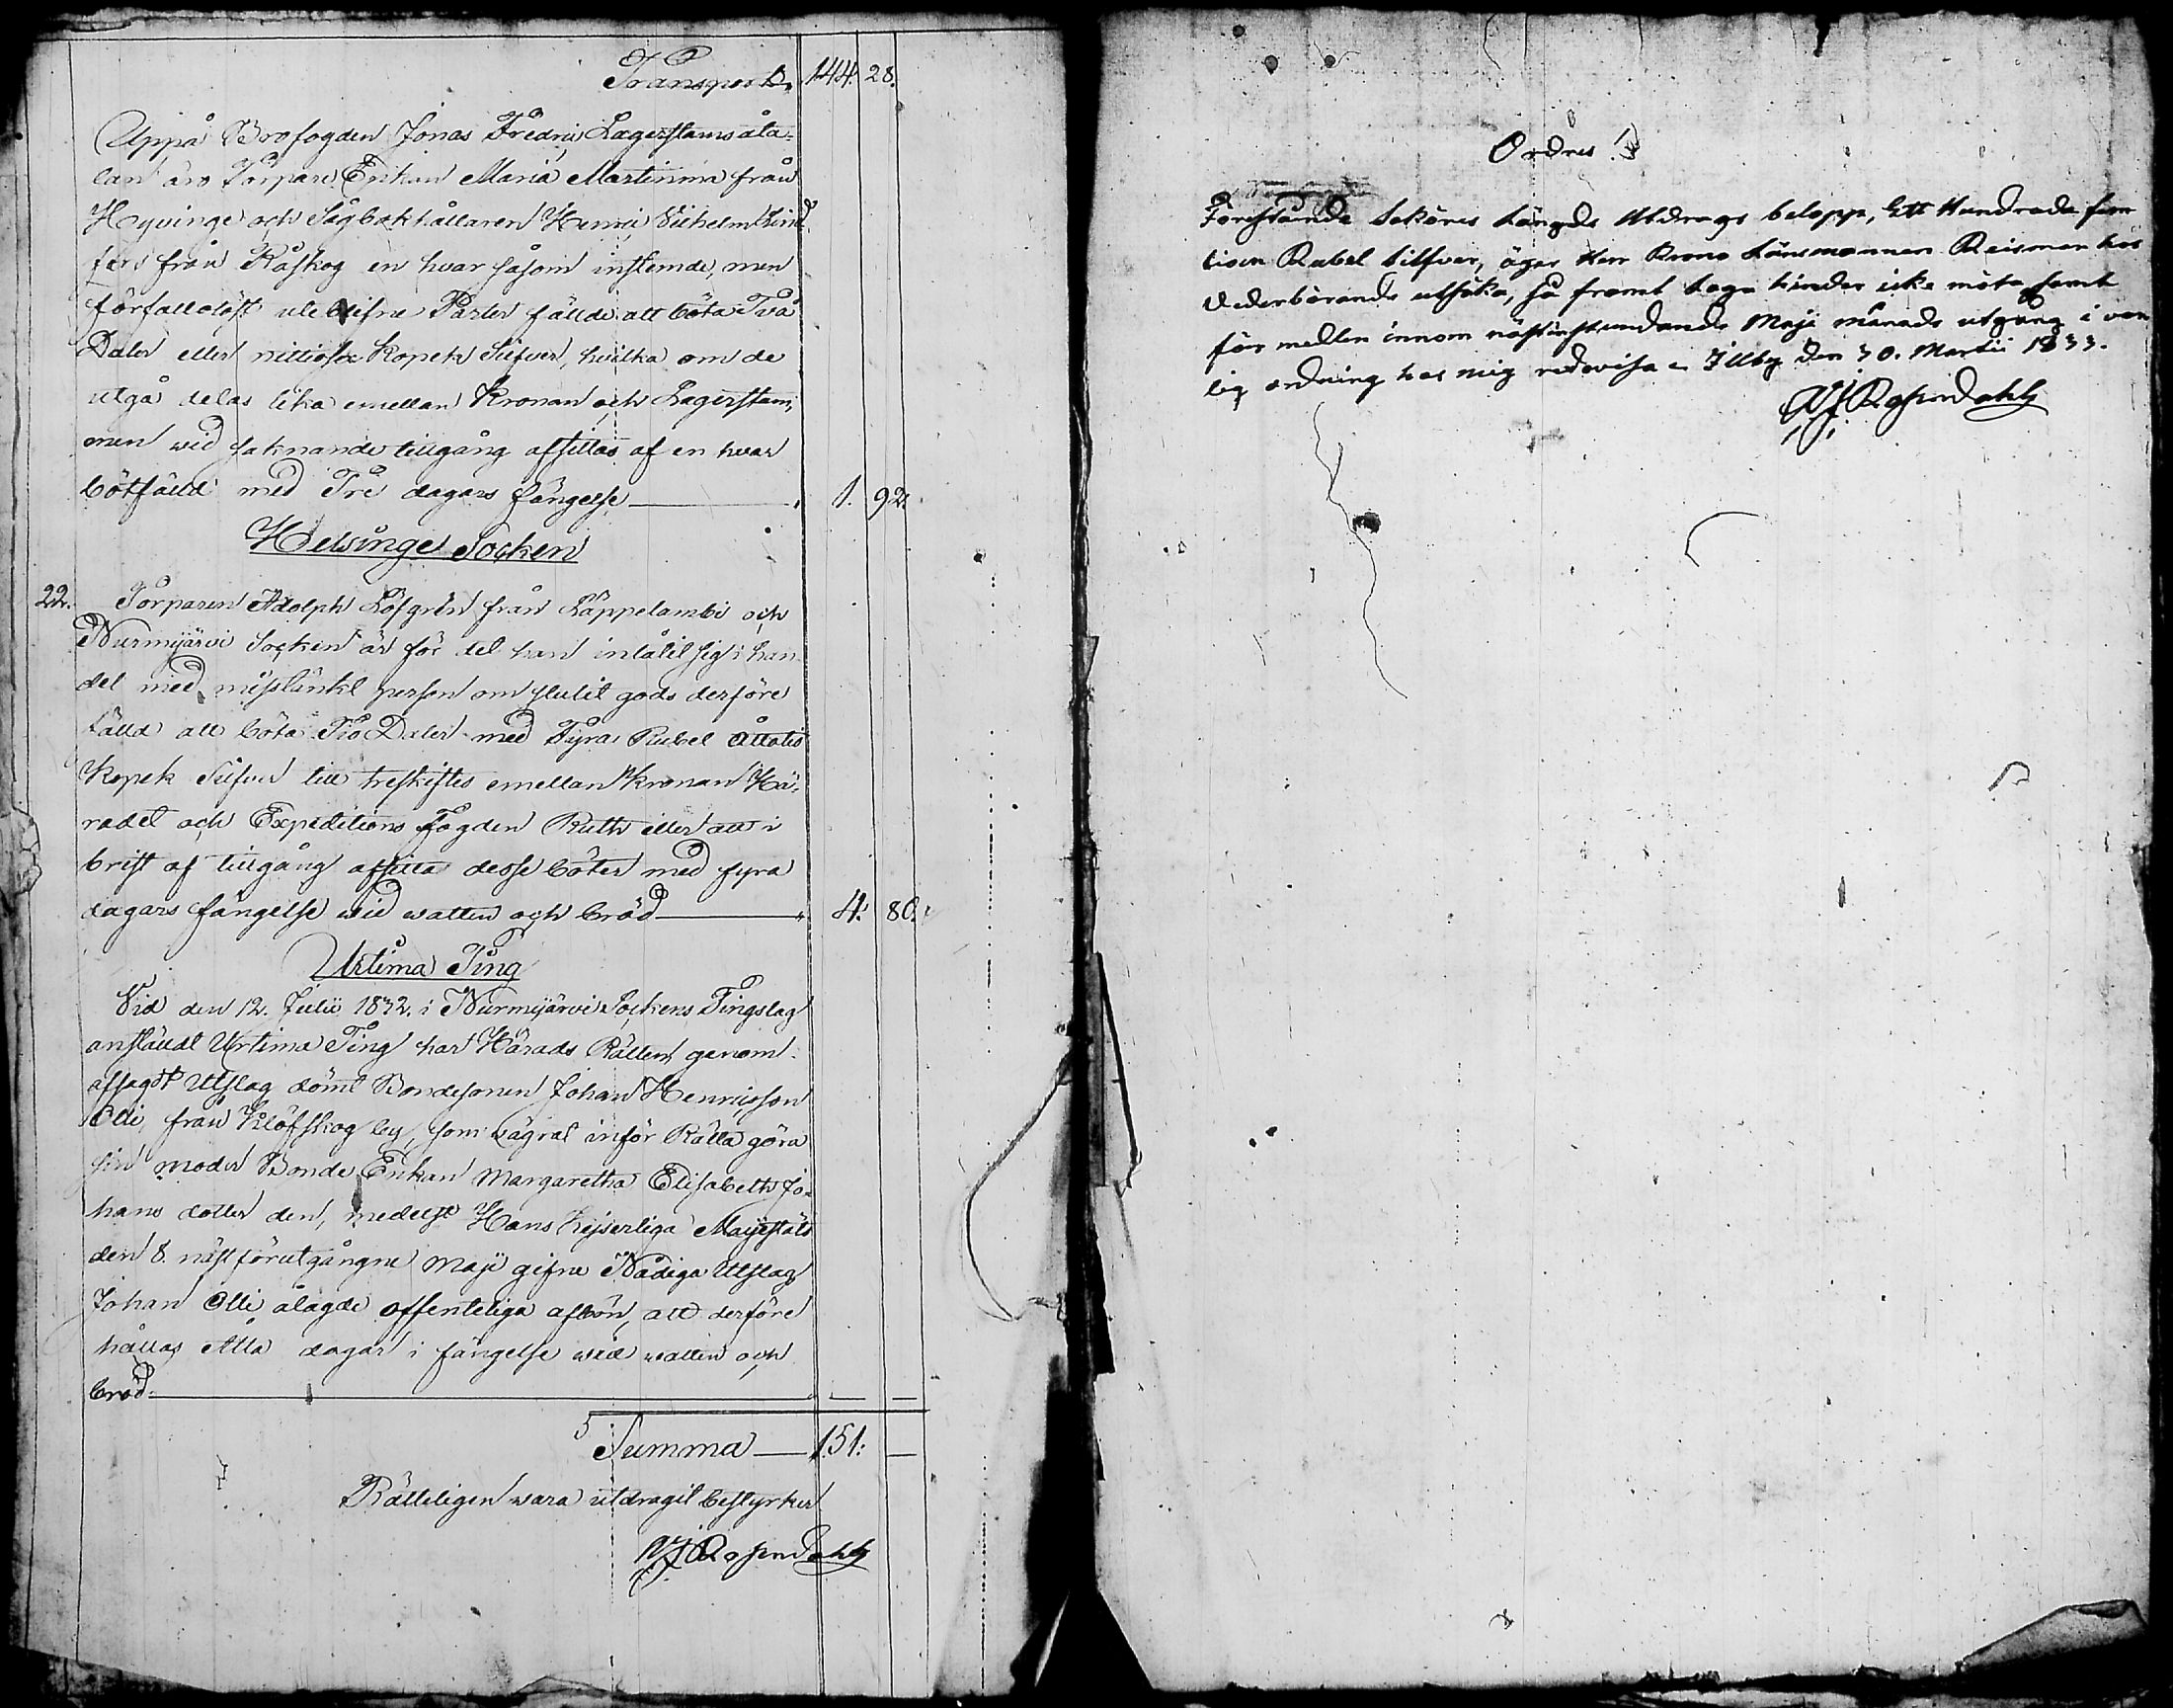 Transport. 144. 28.
Uppå Brofogden Jonas Fredric Lagerstams åta-
lan äro Torpare Enkan Maria Martinsson från
Hyvinge och Sågbokhållaren Henric Vilhelm Lind
fors från Råskog en hvar såsom instemde, men
förfallolöst uteblifne Parter fällde att böta Två
Daler eller nittiosex Kopek Silfver, hvilka om de
utgå delas lika emellan Kronan och Lagerstam,
men wid saknande tillgång afsittas af en hvar
bötfälld med Tre dagars fängelse 1. 92.
Helsinge Socken
22. Torparen Adolph Löfgrén från Lappelambi och
Nurmijärvi Socken är för det han inlåtit sig i han-
del med misstänkt person om stulit gods derföre
fälld att böta Tio Daler med Fyra Rubel Åttatio
Kopek Silfver till treskiftes emellan Kronan Hä-
radet och Expeditions Fogden Ruth eller att i
brist af tillgång afsitta desse böter med fyra
dagars fängelse wid watten och bröd 4. 80.
Urtima Ting
Vid den 12. Julii 1832. i Nurmijärvi Sockens Tingslag
anställdt Urtima Ting har Härads Rätten genom
afsagdt Utslag dömt Bondesonen Johan Henricsson
Olli, från Klöfskog by, som vägrat inför Rätta göra
sin moder Bonde Enkan Margaretha Elisabeth Jo-
hans dotter den, medelst Hans Kejserliga Majestäts
den 8. nästförutgångne Maji gifne Nådiga Utslag
Johan Olli ålagde offenteliga afbön, att derföre
hållas Åtta dagar i fängelse wid watten och
bröd
Summa 151.
Rätteligen wara utdragit bestyrker
Rosendahl
Ordres!
Förestående Saköres Längds Utdrags belopp, Ett Hundrade fem
tioen Rubel Silfver, äger Herr Krono Länsmannen Reisman hos
Vederbörande utsöka, så framt laga hinder icke möta samt
för medlen innom nästinstundande Maji månads utgång i van
lig ordning hos mig redovisa. Illby den 30. Martii 1833.
Rosendahl